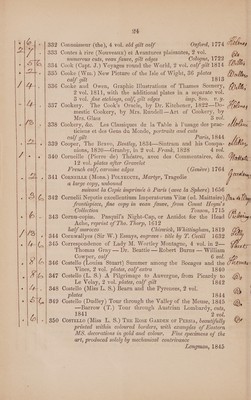 24
332 Connoisseur (the), 4 vol. old gilt calf Oxford, 1774
333 Contes à rire (Nouveaux) et Avantures plaisantes, 2 vol.
numerous cuts, some fauns, gilt edges Cologne, 1722
334 Cook (Capt. J.) Voyages round the World, 2 vol. calf gilt 1814
335 Cooke (Wm.) New Picture of the Isle of Wight, 36 plates
calf gilt 1813
336 Cooke and Owen, Graphic Illustrations of Thames Scenery,
2 vol. 1811, with the additional plates in a separate vol.
3 vol. fine etchings, calf, gilt edges imp. 8vo. v. y.
337 Cookery. The Cook's Oracle, by Dr. Kitchener, 1822—Do-
mestic Cookery, by Mrs. Rundell—Art of Cookery, by
Mrs. Glass 3 vol.
338 Cookery, &c. Les Classiques de la Table à l'usage des prac-
ticiens et des Gens du Monde, portraits and cuts
calf gilt Paris, 1844
339 Cooper, The Bravo, Bentley, 1834—Scotsan and his Compa-
nions, 1839—Granby, in 2 vol. Froud, 1828
340 Corneille (Pierre de) Théatre, avec des Commentaires, &c.
12 vol. plates after Gravelot
French calf, carmine edges (Genève) 1764
341 Corraria (Mons.) Polyeucte, Martyr, Tragedie
a large copy, unbound
suivant la Copie imprimée à Paris (avec la Sphere) 1656
342 Cornelii Nepotis excellentium Imperatorum Vitæ (ed. Maittaire)
frontispiece, fine copy in more foram, from Count Hoym's
Collection Tonson, 1715
343 Cornu-copiæ. Pasquil's Night-Cap, or Antidot for the Head
Ashbee, reprint of Tho. Thorp, 1612
half morocco Chiswick, Whittingham, 1819
344 Cornwallyes (Sir W.) Essays, engravd. title by T. Cecill 1632
345 Correspondence of Lady M. Wortley Montague, 4 vol. in 2—
Thomas Gray—Dr. Beattie—Robert Burns—William
Cowper, calf 6 vol.
346 Costello (Louisa Stuart) Summer among the Bocages and the
Vines, 2 vol. plates, calf extra 1840
347 Costello (L. S.) A Pilgrimage to Auvergne, from Picardy to
Le Velay, 2 vol. plates, calf gilt 1842
348 Costello (Miss L. S.) Bearn and the Pyrenees, 2 vol.
plates 1844
349 Costello (Dudley) Tour through the Valley of the Meuse, 1845
—Barrow (T.) Tour through Austrian Lombardy, cuts,
1841 2 vol.
350 Costello (Miss L. S.) The Rose Garden of Persia, beautifully
printed within coloured borders, with examples of Eastern
MS. decorations in gold and colour. Fine specimens of the
art, produced solely by mechanical contrivance
Longman, 1845